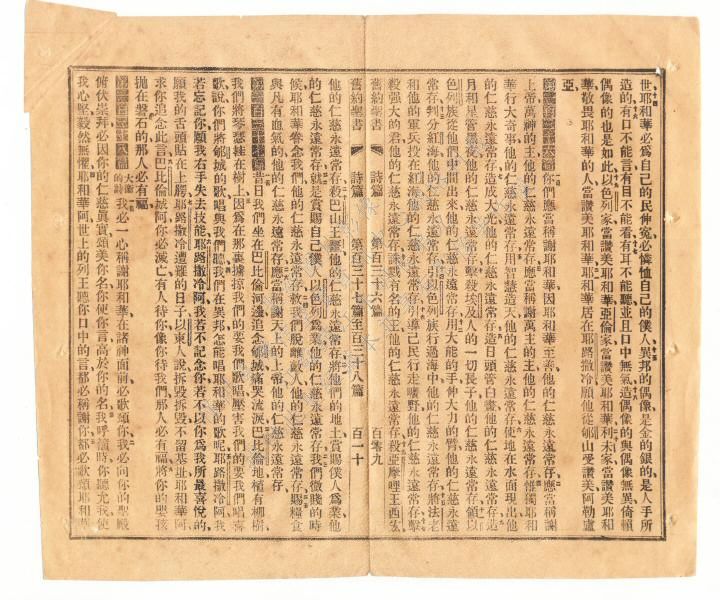 世耶和華必為自己的民伸冤必憐恤自己的僕人異邦的偶像是金的銀的是人手所
造的有口不能言有目不能看有耳不能聽並且口中無氣造偶像的與偶像無異倚賴
偶像的也是如此以色列家當讚美耶和華亞倫家當讚美耶和華利未家當讚美耶和
華敬畏耶和華的人當讚美耶和華耶和華居在耶路撒冷願他從郇山受讚美阿勒盧
亞
你們應當稱謝耶和華因耶和華至善他的仁慈永遠常存應當稱謝
上帝萬神的主他的仁慈永遠常存應當稱謝萬主的主他的仁慈永遠常存惟獨耶和
華行大奇事他的仁慈永遠常存用智慧造天他的仁慈永遠常存使地在水面現出他
的仁慈永遠常存造成大光他的仁慈永遠常存造日頭管白晝他的仁慈永遠常存造
月和星管黑夜他的仁慈永遠常存擊殺埃及人的一切長子他的仁慈永遠常存領以
色列族從他們中間出來他的仁慈永遠常存用大能的手伸大力的臂他的仁慈永遠
常存判分紅海他的仁慈永遠常存引以色列族行過海中他的仁慈永遠常存將法老
和他的軍兵投在紅海他的仁慈永遠常存引導己民行走曠野他的仁慈永遠常存擊
殺强大的君他的仁慈永遠常存誅戮有名的王他的仁慈永遠常存殺亞摩哩王西宏
舊約聖書 詩篇 第百三十六篇 百零九
舊約聖書 詩篇 第百三十七篇至百三十八篇 百一十
他的仁慈永遠常存殺巴山王噩他的仁慈永遠常存將他們的地土賞賜僕人為業他
的仁慈永遠常存就是賞賜自己僕人以色列為業他的仁慈永遠常存我們微賤的時
候耶和華眷念我們他的仁慈永遠常存救我們脫離敵人他的仁慈永遠常存賜糧食
與凡有血氣的他的仁慈永遠常存應當稱謝天上的上帝他的仁慈永遠常存
昔日我們坐在巴比倫河邊追念郇城痛哭流淚巴比倫地植有柳樹
我們將琴瑟挂在樹上因為在那裏擄掠我們的要我們歌唱壓害我們的要我們唱喜
歌說你們將郇城的歌唱與我們聽我們在異邦怎能唱耶和華的歌呢耶路撒冷阿我
若忘記你願我右手失去技能耶路撒冷阿我若不記念你若不以你為我所最喜悅的
願我的舌頭貼在上膛耶路撒冷遭難的日子以東人說拆毀拆毀不留基址耶和華阿
求你追念此言巴比倫城阿你必滅亡有人待你像你待我們那人必有福將你的嬰孩
拋在磐石的那人必有福
大衞的詩 我必一心稱謝耶和華在諸神面前必歌頌你我必向你的聖殿
俯伏崇拜必因你的仁慈真實頌美你名你使你言高於你的名我呼籲時你聽允我使
我心堅毅然無懼耶和華阿世上的列王聽你口中的言都必稱謝你都必歌頌耶和華